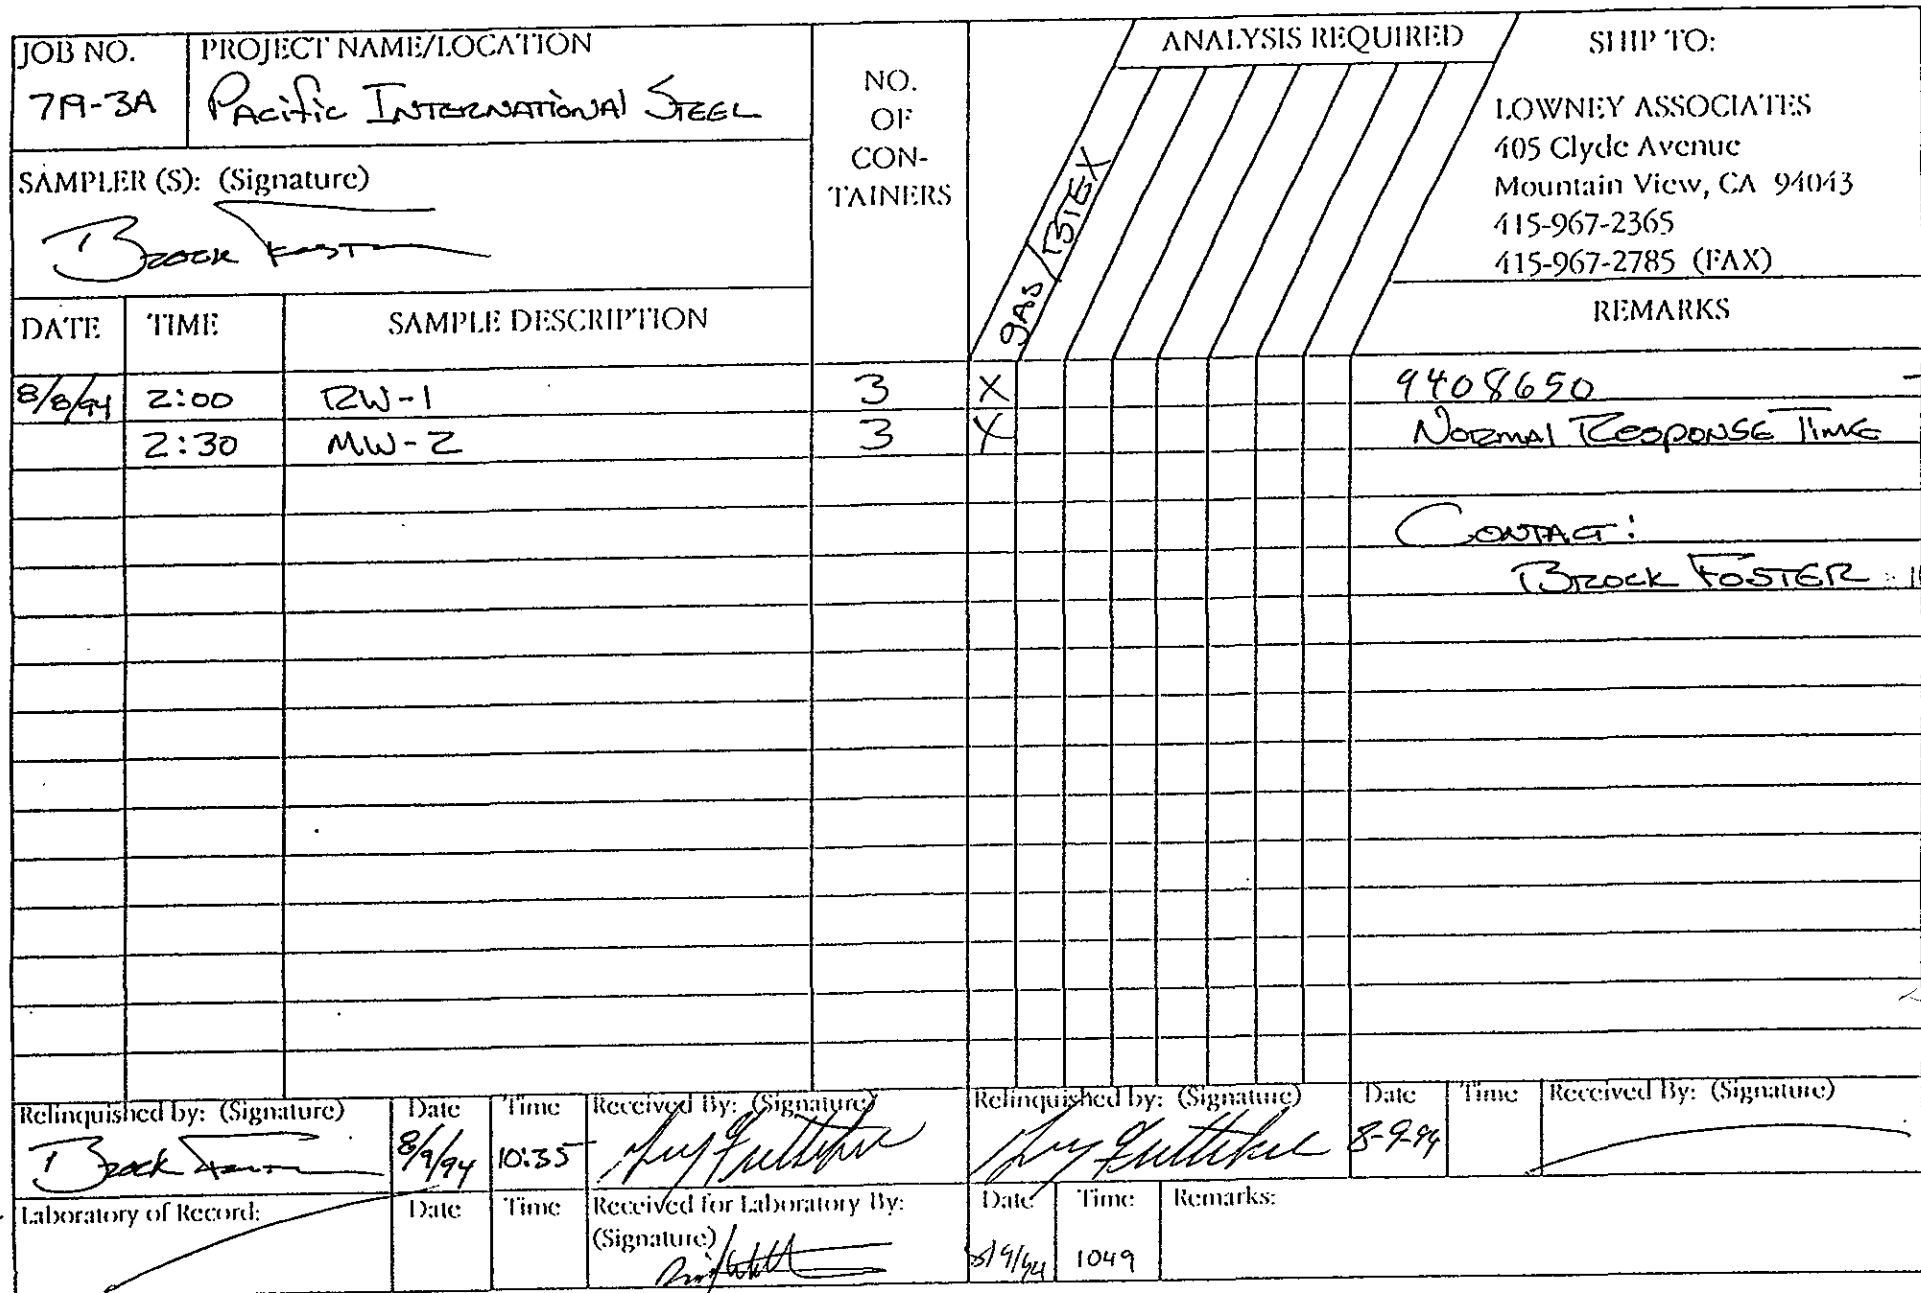 JOB NO.
719-3A
PROJECT NAME/LOCATION
Pacific International Steel
SAMPLER (S): (Signature)
Brock Foster
NO.
OF
CON-
TAINERS
ANALYSIS REQUIRED
gas/BTEX
SHIP TO:
LOWNEY ASSOCIATES
405 Clyde Avenue
Mountain View, CA 94043
415-967-2365
415-967-2785 (FAX)
DATE TIME SAMPLE DESCRIPTION
REMARKS
8/8/94 2:00 RW-1 3 X 9408650
2:30 MW-2 3 X Normal Response Time
Contact:
Brock Foster
Relinquished by: (Signature) Date Time Received By: (Signature) Relinquished by: (Signature) Date Time Received By: (Signature)
Brock Foster 8/9/94 10:35 8-9-94
Laboratory of Record: Date Time Received for Laboratory By: Date Time Remarks:
(Signature)
8/9/94 1049